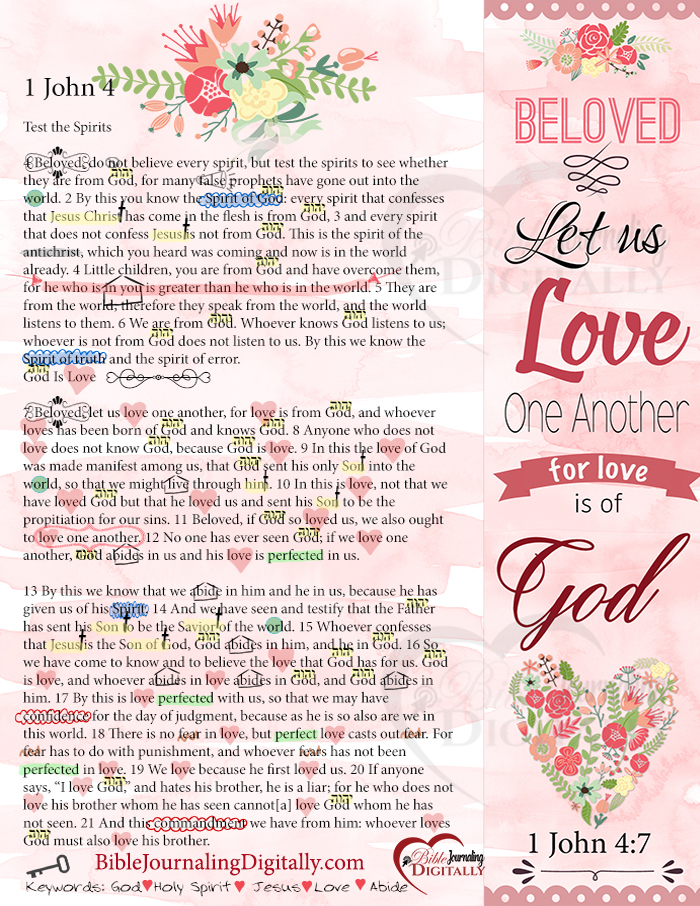 1 John 4
Test the Spirits
4 Beloved, do not believe every spirit, but test the spirits to see whether
they are from God, for many false prophets have gone out into the
world. 2 By this you know the Spirit of God: every spirit that confesses
that Jesus Christ has come in the flesh is from God, 3 and every spirit
that does not confess Jesus is not from God. This is the spirit of the
antichrist, which you heard was coming and now is in the world
already. 4 Little children, you are from God and have overcome them,
for he who is in you is greater than he who is in the world. 5 They are
from the world, therefore they speak from the world, and the world
listens to them. 6 We are from God. Whoever knows God listens to us;
whoever is not from God does not listen to us. By this we know the
Spirit of truth and the spirit of error.
God Is Love
7 Beloved, let us love one another, for love is from God, and whoever
loves has been born of God and knows God. 8 Anyone who does not
love does not know God, because God is love. 9 In this the love of God
was made manifest among us, that God sent his only Son into the
world, so that we might live through him. 10 In this is love, not that we
have loved God but that he loved us and sent his Son to be the
propitiation for our sins. 11 Beloved, if God so loved us, we also ought
to love one another. 12 No one has ever seen God; if we love one
another, God abides in us and his love is perfected in us.
13 By this we know that we abide in him and he in us, because he has
given us of his Spirit. 14 And we have seen and testify that the Father
has sent his Son to be the Savior of the world. 15 Whoever confesses
that Jesus is the Son of God, God abides in him, and he in God. 16 So
we have come to know and to believe the love that God has for us. God
is love, and whoever abides in love abides in God, and God abides in
him. 17 By this is love perfected with us, so that we may have
confidence for the day of judgment, because as he is so also are we in
this world. 18 There is no fear in love, but perfect love casts out fear. For
fear has to do with punishment, and whoever fears has not been
perfected in love. 19 We love because he first loved us. 20 If anyone
says, “I love God,” and hates his brother, he is a liar; for he who does not
love his brother whom he has seen cannot[a] love God whom he has
not seen. 21 And this commandment we have from him: whoever loves
God must also love his brother.
BibleJournalingDigitally.com
Bible Journaling
DIGITALLY
Keywords: God Holy Spirit Jesus Love Abide
BELOVED
Let us
Love
One Another
for love
is of
God
1 John 4:7